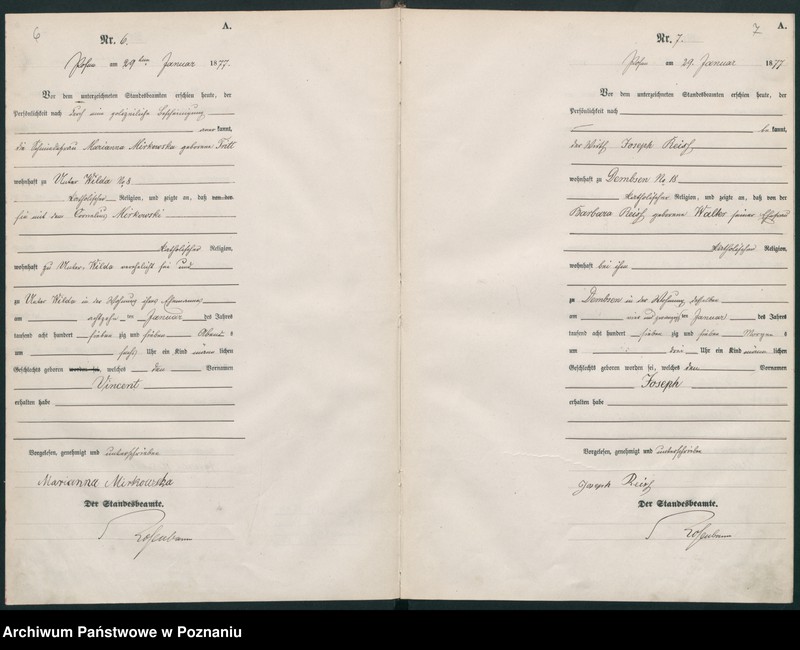 6
A.
Nr. 6.
Posen am 29ten Januar 1877.
Vor dem unterzeichneten Standesbeamten erschien heute, der
Persönlichkeit nach durch eine polizeiliche Bescheinigung
aner kannt,
die Schmiedefrau Marianna Mirkowska geborene
wohnhaft zu Unter Wilda No 8
katholischer Religion, und zeigte an, daß von der
sie mit dem Cornelius Mirkowski
katholischer Religion,
wohnhaft zu Unter-Wilda verehelicht sei und
zu Unter Wilda in der Wohnung ihres Ehemannes
am achtzehnten Januar des Jahres
tausend acht hundert sieben zig und sieben Abends
um fünf Uhr ein Kind männlichen
Geschlechts geboren worden sei, welches den Vornamen
Vincent
erhalten habe
Vorgelesen, genehmigt und unterschrieben
Marianna Mirkowska
Der Standesbeamte.
7
A.
Nr. 7.
Posen am 29. Januar 1877
Vor dem unterzeichneten Standesbeamten erschien heute, der
Persönlichkeit nach
be kannt,
der Wirth Joseph Reisch
wohnhaft zu Dembsen No. 18
katholischer Religion, und zeigte an, daß von der
Barbara Reisch geborene Walter seiner Ehefrau
katholischer Religion,
wohnhaft bei ihm
zu Dembsen in der Wohnung desselben
am vier und zwanzigsten Januar des Jahres
tausend acht hundert sieben zig und sieben Morgens
um drei Uhr ein Kind männlichen
Geschlechts geboren worden sei, welches den Vornamen
Joseph
erhalten habe
Vorgelesen, genehmigt und unterschrieben
Joseph Reisch
Der Standesbeamte.
Archiwum Państwowe w Poznaniu